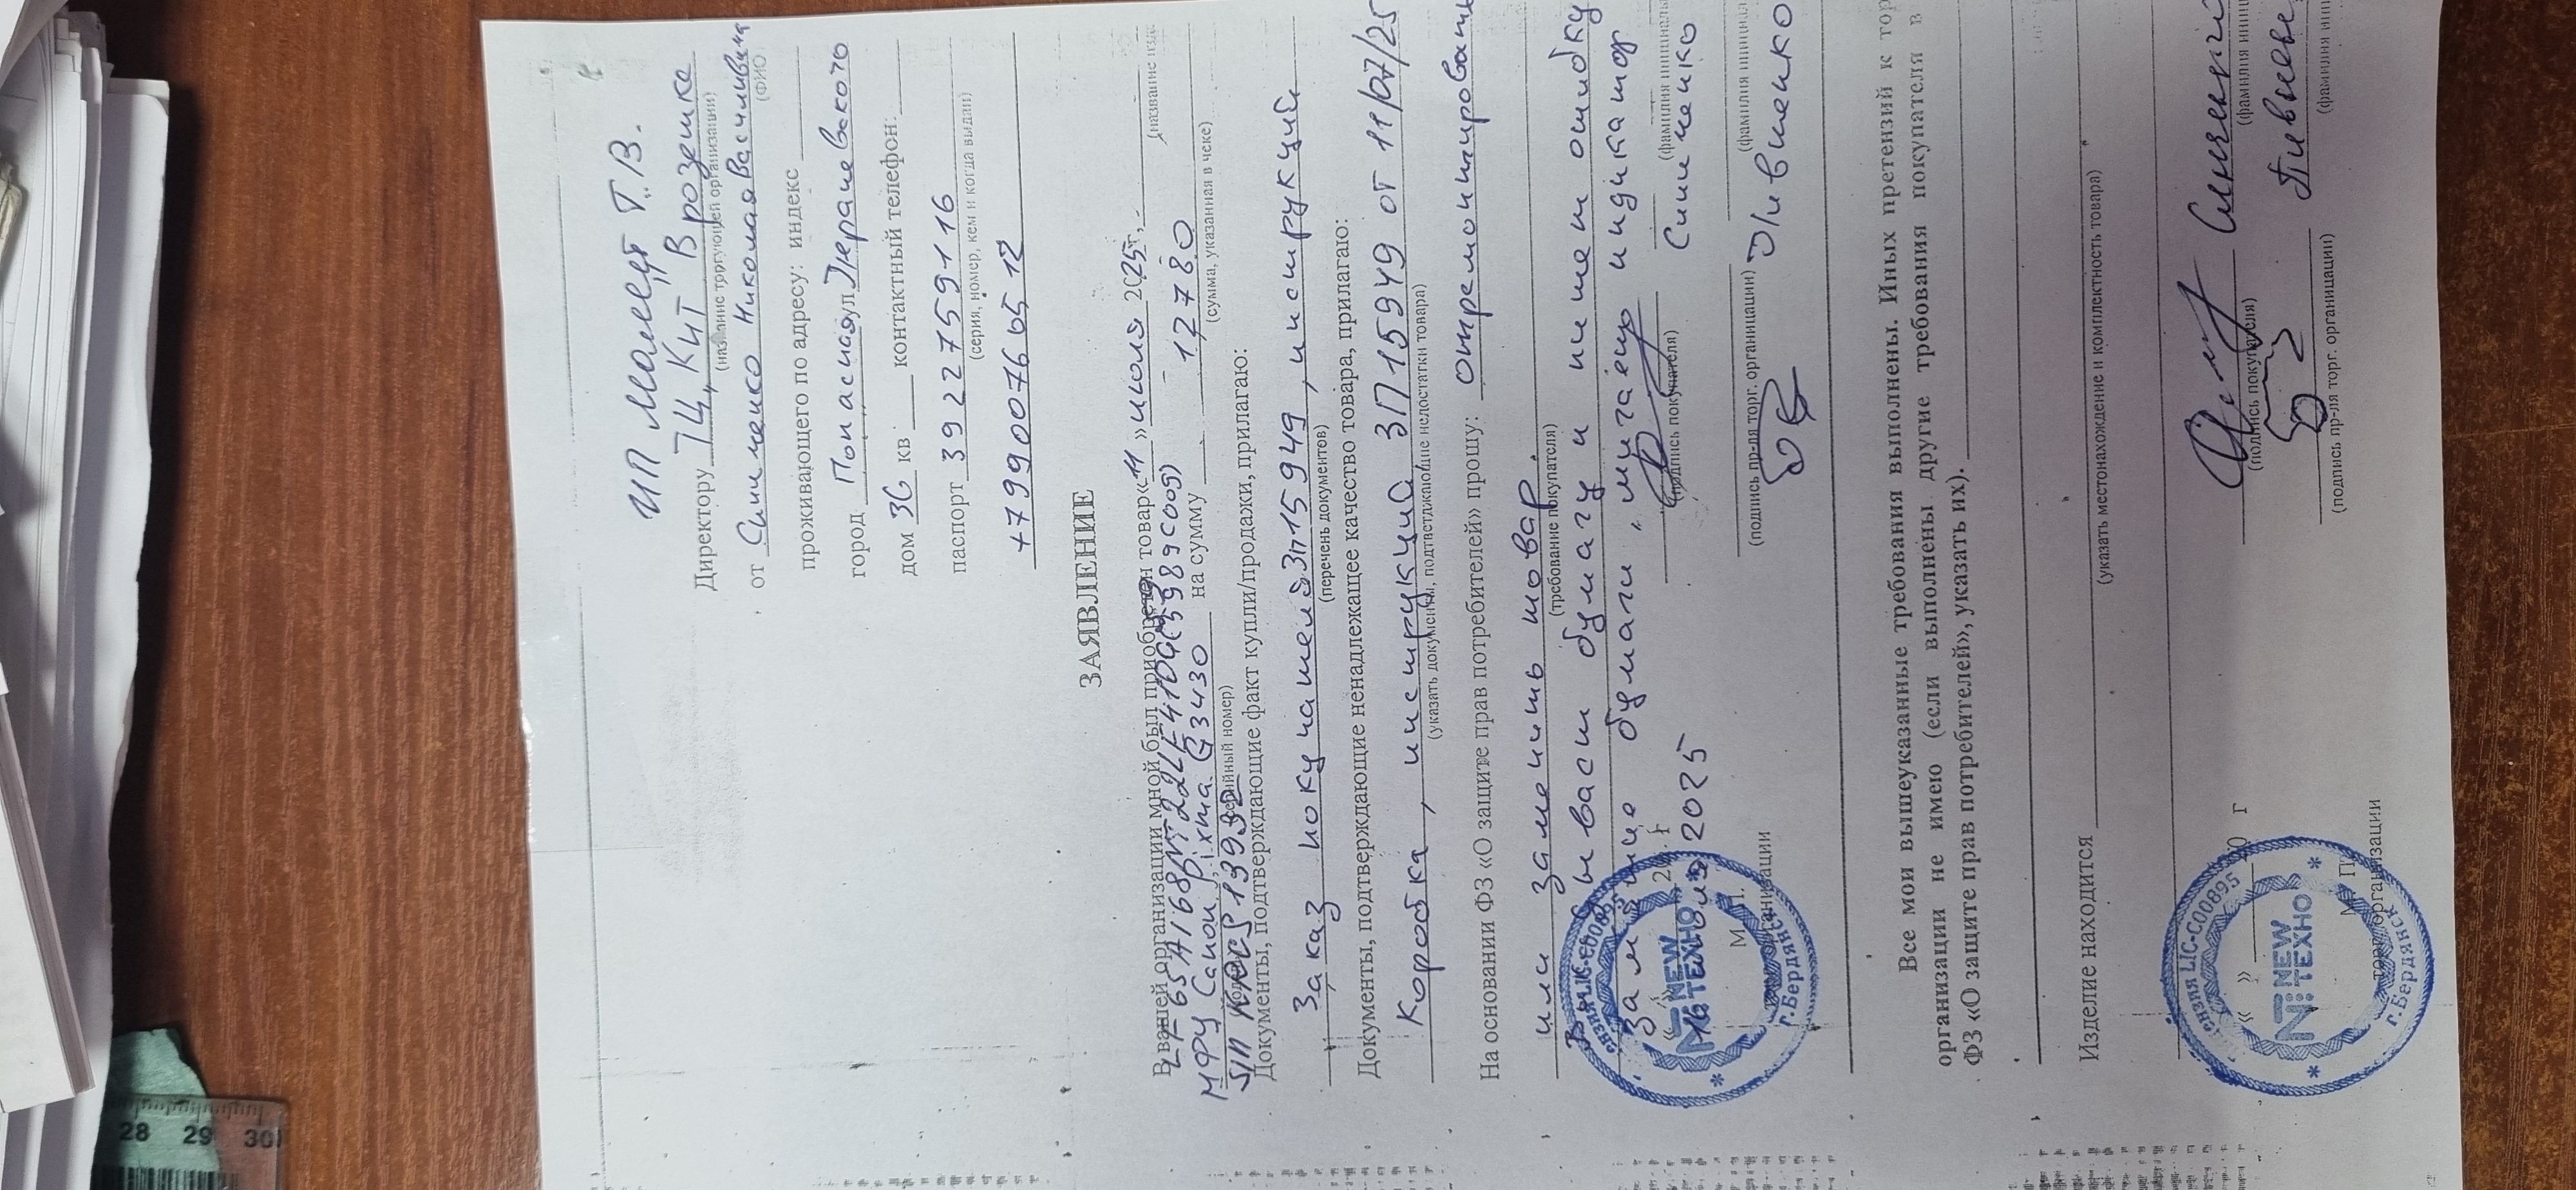 ИП Молецт Т.В.
Директору ТЦ "Кит" В розетке
(название торгующей организации)
от Синименко Николая Васильевича
(ФИО)
проживающего по адресу: индекс
город Попасная ул
дом 36 кв контактный телефон:
паспорт 3922759116
(серия, номер, кем и когда выдан)
+79900765512
ЗАЯВЛЕНИЕ
В вашей организации мной был приобретен товар «11» июля 2025г,
(название изд
МФУ Canon pixma G3430 на сумму 12780
(серийный номер) (сумма, указанная в чеке)
Документы, подтверждающие факт купли/продажи, прилагаю:
Заказ покупателя ЗП15949, инструкций
(перечень документов)
Документы, подтверждающие ненадлежащее качество товара, прилагаю:
Коробка, инструкция, ЗП15949 от 11/07/25
(указать документы, подтверждающие недостатки товара)
На основании ФЗ «О защите прав потребителей» прошу: отремонтировать
или заменить товар.
(требование покупателя)
бумагу и пишет ошибку
бумаги, мигает индикатор
16 июля 2025 20 г
(подпись покупателя) (фамилия инициалы
Синименко
М.П.
торг.организации
(подпись пр-ля торг. организации) (фамилия инициа
Лившенко
Лицензия LIC-C00895
NEW ТЕХНО
г.Бердянск
Все мои вышеуказанные требования выполнены. Иных претензий к тор
организации не имею (если выполнены другие требования покупателя в
ФЗ «О защите прав потребителей», указать их).
Изделие находится
(указать местонахождение и комплектность товара)
« » 20 г
(подпись покупателя) (фамилия иниц
М.П.
торг.организации
(подпись пр-ля торг. организации) (фамилия ини
Лицензия LIC-C00895
NEW ТЕХНО
г.Бердянск
28 29 30